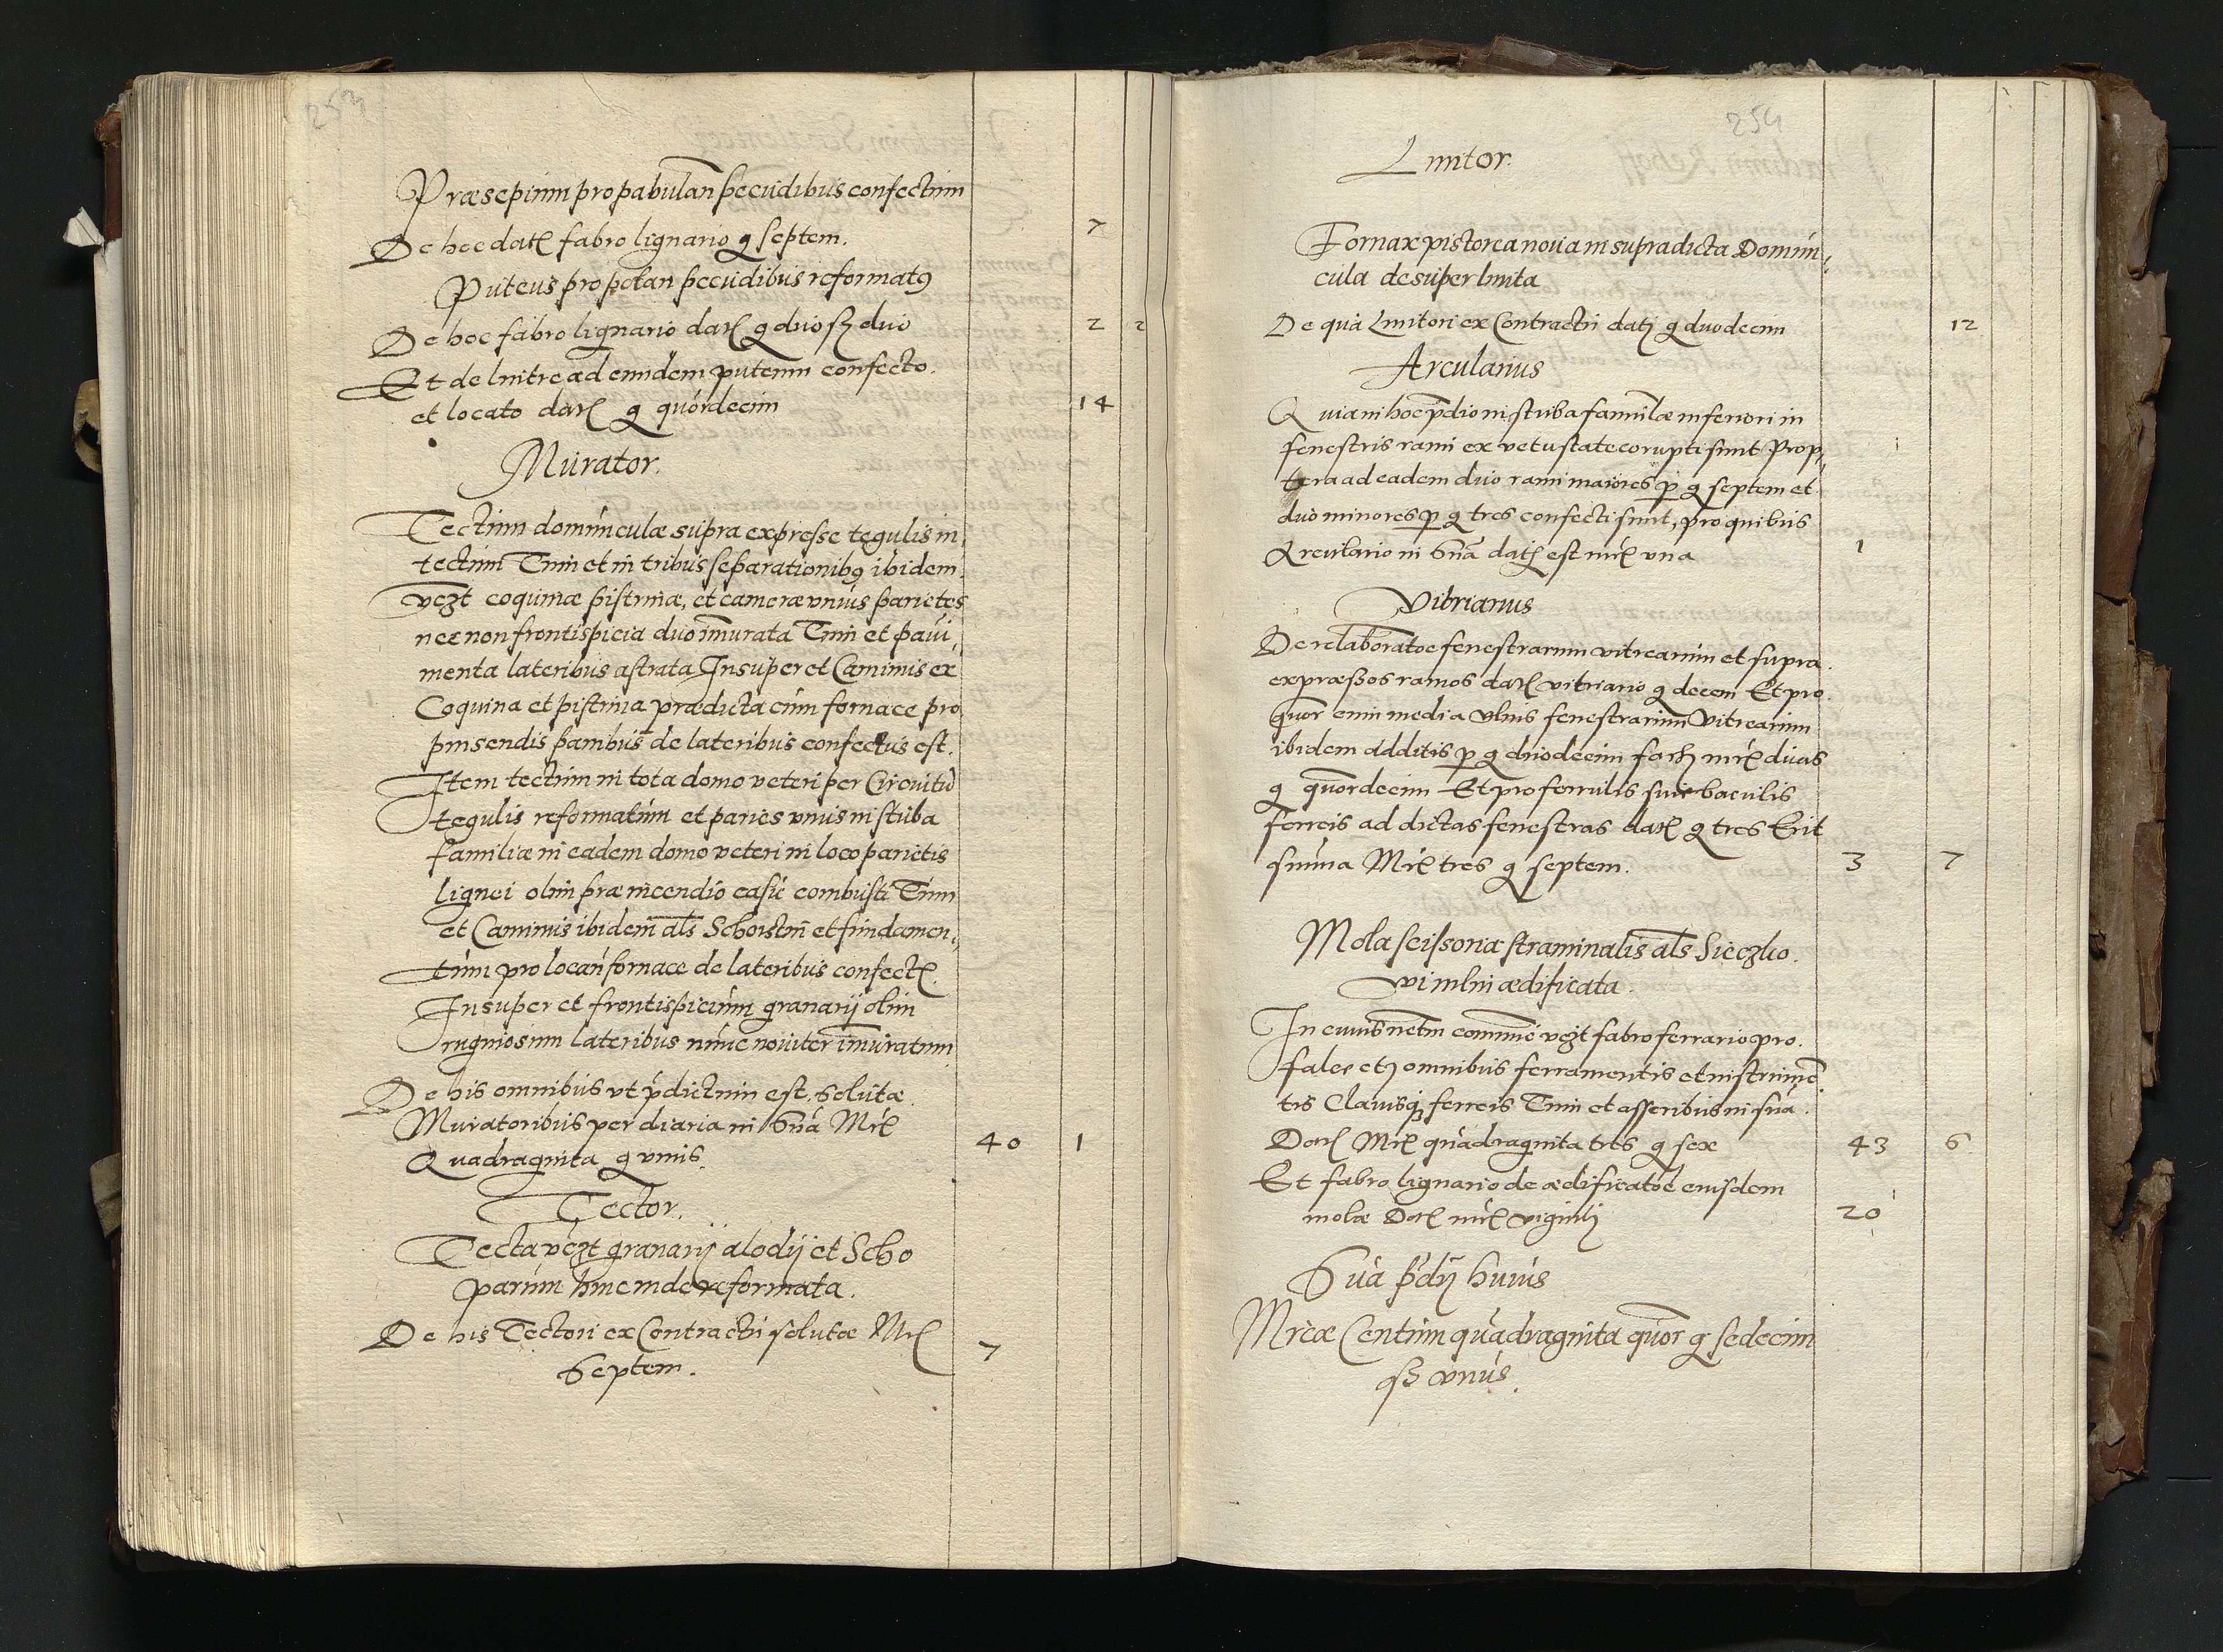 253
Præsepium pro pabulan̄ pecudibus confectum
De hoc dat fabro lignario g septem. 7
Puteus pro potan pecudibus reformatꝯ
De hoc fabro lignario dat g duo ß duo 2 2
Et de luitre ad eundem puteum confecto.
et locato dat g quordecim 14
Murator.
Tectum domunculæ supra expresse tegulis in,
tectum Tum et in tribus separationibꝯ ibidem.
vczt coquinæ pistrinæ, et cameræ unius parietes
nec non frontispicia duo īmurata Tum et pavi,
menta lateribus astrata Insuper et Caminus ex
Coquina et pistrina prædicta cum fornace pro
pinsendis panibus de lateribus confectus est.
Item tectum in tota domo veteri per Circuitu
tegulis reformatum et paries unus in stuba
familiæ in eadem domo veteri in loco parietis
lignei olim præ incendio casu combusti Tum
et Caminus ibidem als Schorstin et fundamen,
tum pro locan̄ fornace de lateribus confect
Insuper et frontispicium granarij olim
ruginosum lateribus nunc noviter īmuratum
De his omnibus ut p̄dictum est. solutæ
Muratoribus per diaria in Sūa Mrc
Quadraginta g unus. 40 1
Tector.
Tecta vczt granarij alodij et Scho
parum hinc inde reformata.
De his Tectori ex Contractu solutæ Mrc 7
Septem.
254
Lmitor.
Fornax pistorea nova in supradicta Domun,
cula desuper limita
De qua Lmitori ex Contractu dati g duodecim 12
Arcularius
Quia in hoc p̄dio in stuba familæ inferiori in
fenestris rami ex vetustate corupti sunt Prop,
terea ad eadem duo rami maiores p g septem et
duo minores p g tres confecti sunt, pro quibus
Arculario in Sūa dat est mrc una 1
Vitriarius
De relaboratōe fenestrarum vitrearum et supra.
expræssos ramos dat vitriario g decem Et pro.
quor cum media Ulnis fenestrarum Vitrearum
ibidem additis p g duodecim fach mrc duas
g quordecim Et pro ferrulis suis baculis
ferreis ad dictas fenestras dat g tres Erit
summa Mrc tres g septem. 3 7
Mola scissoria straminalis als Sieczko.
vi mlni ædificata.
In cuius netm comune vczt fabro ferrario pro.
falce etz omnibus ferramentis et instrumē
tis Clavisqz ferreis Tum et asseribus in sūa.
Dat Mrc quadraginta tres g sex 43 6
Et fabro lignario de ædificatōe eiusdem
molæ Dat mrc viginti 20
Sūa p̄dij huius
Mrcæ Centum quadraginta quor g sedecim
ß unus.